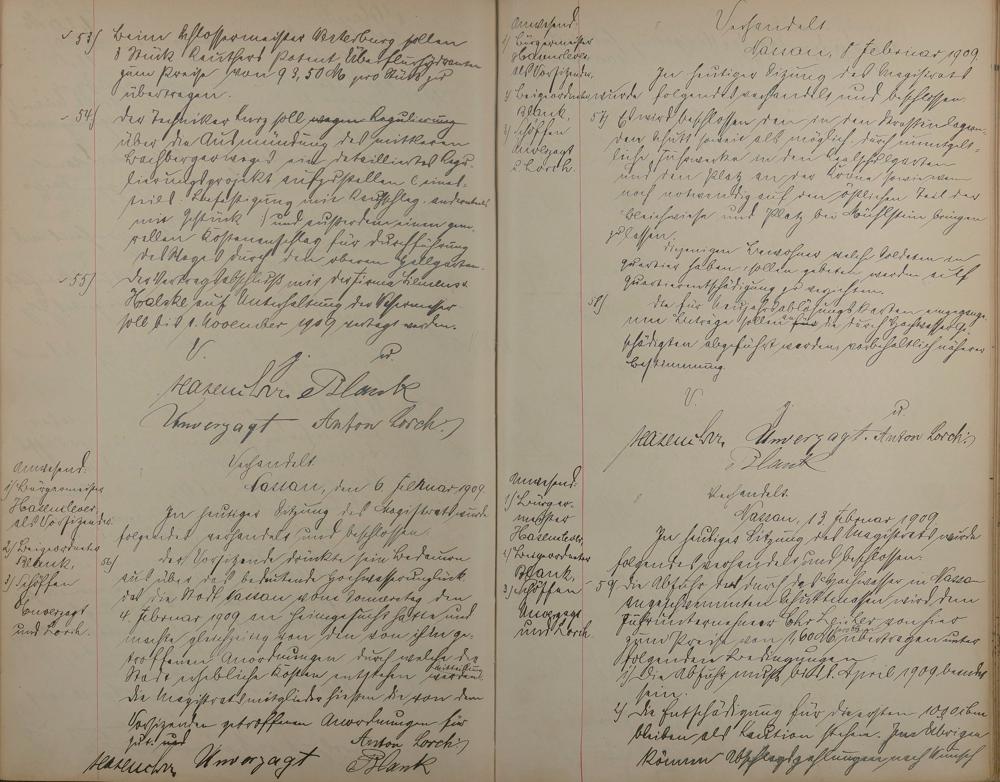 53) Beim Schlossermeister Osterburg sollen
8 Stück Reuthers Patent Überflurhydranten
zum Preise von 93,50 M pro Stück zu
übertragen.
54) Der Techniker Kurz soll wegen Regulierung
über die Ausmündung des mittleren
Bachbergerweges ein detailliertes Regu-
lierungsprojekt aufzustellen (eines-
teils Befestigung mit andernteils
mit Gestück) und außerdem einen gene-
rellen Kostenanschlag für Durchführung
des Weges durch den oberen
55) Der Vertragsabschluß mit der Firma Siemens
Halske auf Unterhaltung der Wassermesser
soll bis 1. November 1909 vertagt werden.
V. g. u.
Hasenclever. Blank
Unverzagt Anton Lorch.
Anwesend:
1) Bürgermeister
Hasenclever
als Vorsitzender.
2) Beigeordneter
Blank,
3) Schöffen
Unverzagt
und Lorch.
Verhandelt
Nassau, den 6. Februar 1909.
In heutiger Sitzung des Magistrats wurde
folgendes verhandelt und beschlossen.
56) Der Vorsitzende drückte sein Bedauern
aus über das bedeutende Hochwasserunglück
das die Stadt Nassau vom Donnerstag den
4. Februar 1909 an heimgesucht hatte und
machte gleichzeitig von den von ihm ge-
troffenen Anordnungen durch welche der
Stadt erhebliche Kosten entstehen werden Mitteilung.
Die Magistratsmitglieder hießen die von dem
Vorsitzenden getroffenen Anordnungen für
gut. und
Anton Lorch.
Hasenclever Unverzagt Blank
Anwesend:
1) Bürgermeister
Hasenclever
als Vorsitzender.
2) Beigeordneter
Blank.
3) Schöffen
Unverzagt
u. Lorch.
Verhandelt
Nassau, 8 Februar 1909.
In heutiger Sitzung des Magistrats
wurde folgendes verhandelt und beschlossen.
57) Es wird beschlossen den in den Strassen lagern-
den Schutt soweit als möglich durch
liche Fuhrwerke in den
und den Platz an der Krone sowie wenn
noch notwendig auf den östlichen Teil der
Bleichwiese und Platz bei Mühlstein bringen
zu lassen.
Diejenigen Bewohner welch Soldaten im
Quartier haben, sollen gebeten werden auf
Quartierentschädigung zu verzichten.
58) Die für Neujahrsablösungskarten eingegange-
nen Beträge sollen für die durch Hochwasser Ge-
schädigten abgeführt werden, vorbehaltlich näherer
Bestimmung.
V. g. u.
Hasenclever, Unverzagt. Anton Lorch.
Blank
Anwesend:
1) Bürger-
meister
Hasenclever
2) Beigeordneter
Blank,
3) Schöffen
Unverzagt
und Lorch.
Verhandelt
Nassau, 13. Februar 1909
In heutiger Sitzung des Magistrats wurde
folgendes verhandelt und beschlossen.
59 Die Abfuhr der durch das Hochwasser in Nassau
angeschwemmten Schuttmassen wird dem
Fuhrunternehmer Chr. von hier
zum Preise von 1,60 M übertragen unter
folgenden Bedingungen
1) Die Abfuhr muß bis 1. April 1909 beendet
sein.
2) Die Entschädigung für die ersten 1000 cbm
bleiben als Kaution stehen. Im Übrigen
können Abschlagszahlungen nach Wunsch